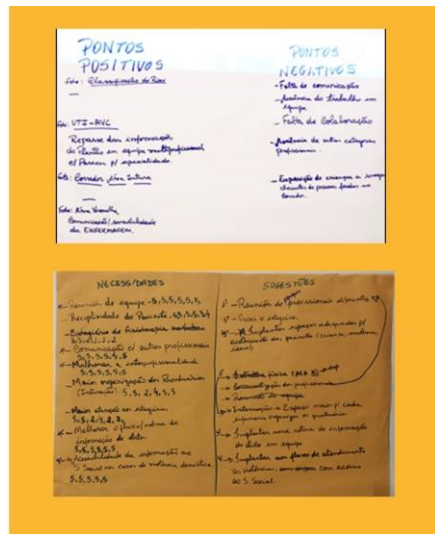 PONTOS
POSITIVOS
Foto: Classificação de Risco
—
Foto: UTI-AVC
Repasse das informações
do Plantão em equipe multiprofissional
c/ Parecer p/ especialidade.
Foto: Corredor, Área Interna
—
Foto: Área Vermelha
Comunicação/
da ENFERMAGEM.
PONTOS
NEGATIVOS
- Falta de comunicação
- Ausência do trabalho em
equipe
- Falta de Colaboração
- Ausência de outras categorias
profissionais.
- Exposição de crianças a
de pessoas no
corredor.
NECESSIDADES
- Reunião de equipe - 5,5,5,5,5,5
- Receptividade do Paciente
- Estagiário de Fisioterapia
- Comunicação c/ outros profissionais
5,5,5,5,5,5
- Melhorar a interprofissionalidade
5,5,5,5,5,5
- Maior organização dos Prontuários
(Internação): 5,5,2,4,5,5
- Maior atenção ao estagiário.
- Melhorar o fluxo/rotina de
informação do óbito.
5,5,5,5,5,5
- Acessibilidade da informação ao
S. Social em casos de violência doméstica
5,5,5,5,5
SUGESTÕES
- Reunião de profissionais diferentes
- Ouvir o estagiário.
- Implantar espaços adequados p/
acolhimento dos pacientes (criança, mulheres,
- Estrutura física
- Conscientização dos profissionais
- Reunião de equipe
- Implantar uma rotina de informação
do óbito em equipe
- Implantar um fluxo de atendimento
as violências, com acesso
ao S. Social.